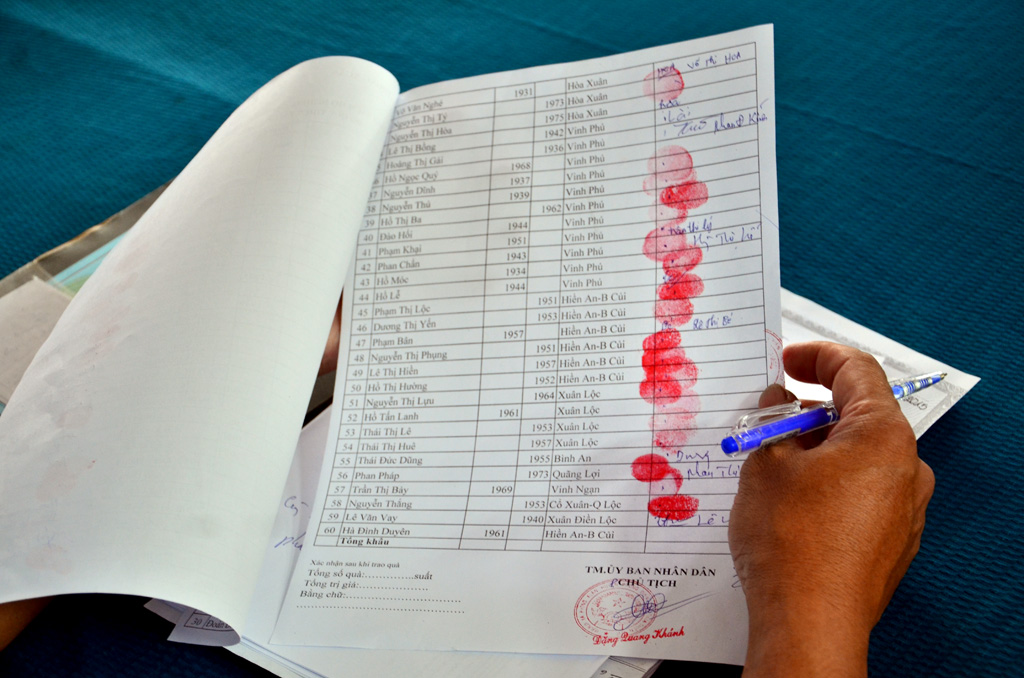 Võ Văn Nghè 1931 Hòa Xuân Võ Thị HOA
Nguyễn Thị Tý 1973 Hòa Xuân
Nguyễn Thị Hòa 1975 Hòa Xuân Hòa
Lê Thị Bông 1942 Vinh Phú
Hoàng Thị Gái 1936 Vinh Phú
Hồ Ngọc Quý 1968 Vinh Phú
37 Nguyễn Dĩnh 1937 Vinh Phú
38 Nguyễn Thú 1939 Vinh Phú
39 Hồ Thị Ba 1962 Vinh Phú
40 Đào Hồi 1944 Vinh Phú
41 Phạm Khai 1951 Vinh Phú
42 Phan Chấn 1943 Vinh Phú
43 Hồ Móc 1934 Vinh Phú
44 Hồ Lễ 1944 Vinh Phú
45 Phạm Thị Lộc 1951 Hiền An-B Củi
46 Dương Thị Yến 1953 Hiền An-B Củi
47 Phạm Bân 1957 Hiền An-B Củi
48 Nguyễn Thị Phụng 1951 Hiền An-B Củi
49 Lê Thị Hiền 1957 Hiền An-B Củi
50 Hồ Thị Hường 1952 Hiền An-B Củi
51 Nguyễn Thị Lựu 1964 Xuân Lộc
52 Hồ Tấn Lanh 1961 Xuân Lộc
53 Thái Thị Lê 1953 Xuân Lộc
54 Thái Thị Huê 1957 Xuân Lộc
55 Thái Đức Dũng 1955 Bình An Dung
56 Phan Pháp 1973 Quãng Lợi Phan Thị
57 Trần Thị Bảy 1969 Vinh Ngạn
58 Nguyễn Thăng 1953 Cổ Xuân-Q Lộc
59 Lê Văn Vay 1940 Xuân Điền Lộc
60 Hà Đình Duyên 1961 Hiền An-B Củi
Tổng khẩu
Xác nhận sau khi trao quà
Tổng số quà:...............suất
Tổng trị giá:....................
Bằng chữ:.................................
TM.ỦY BAN NHÂN DÂN
CHỦ TỊCH
Đặng Quang Khánh